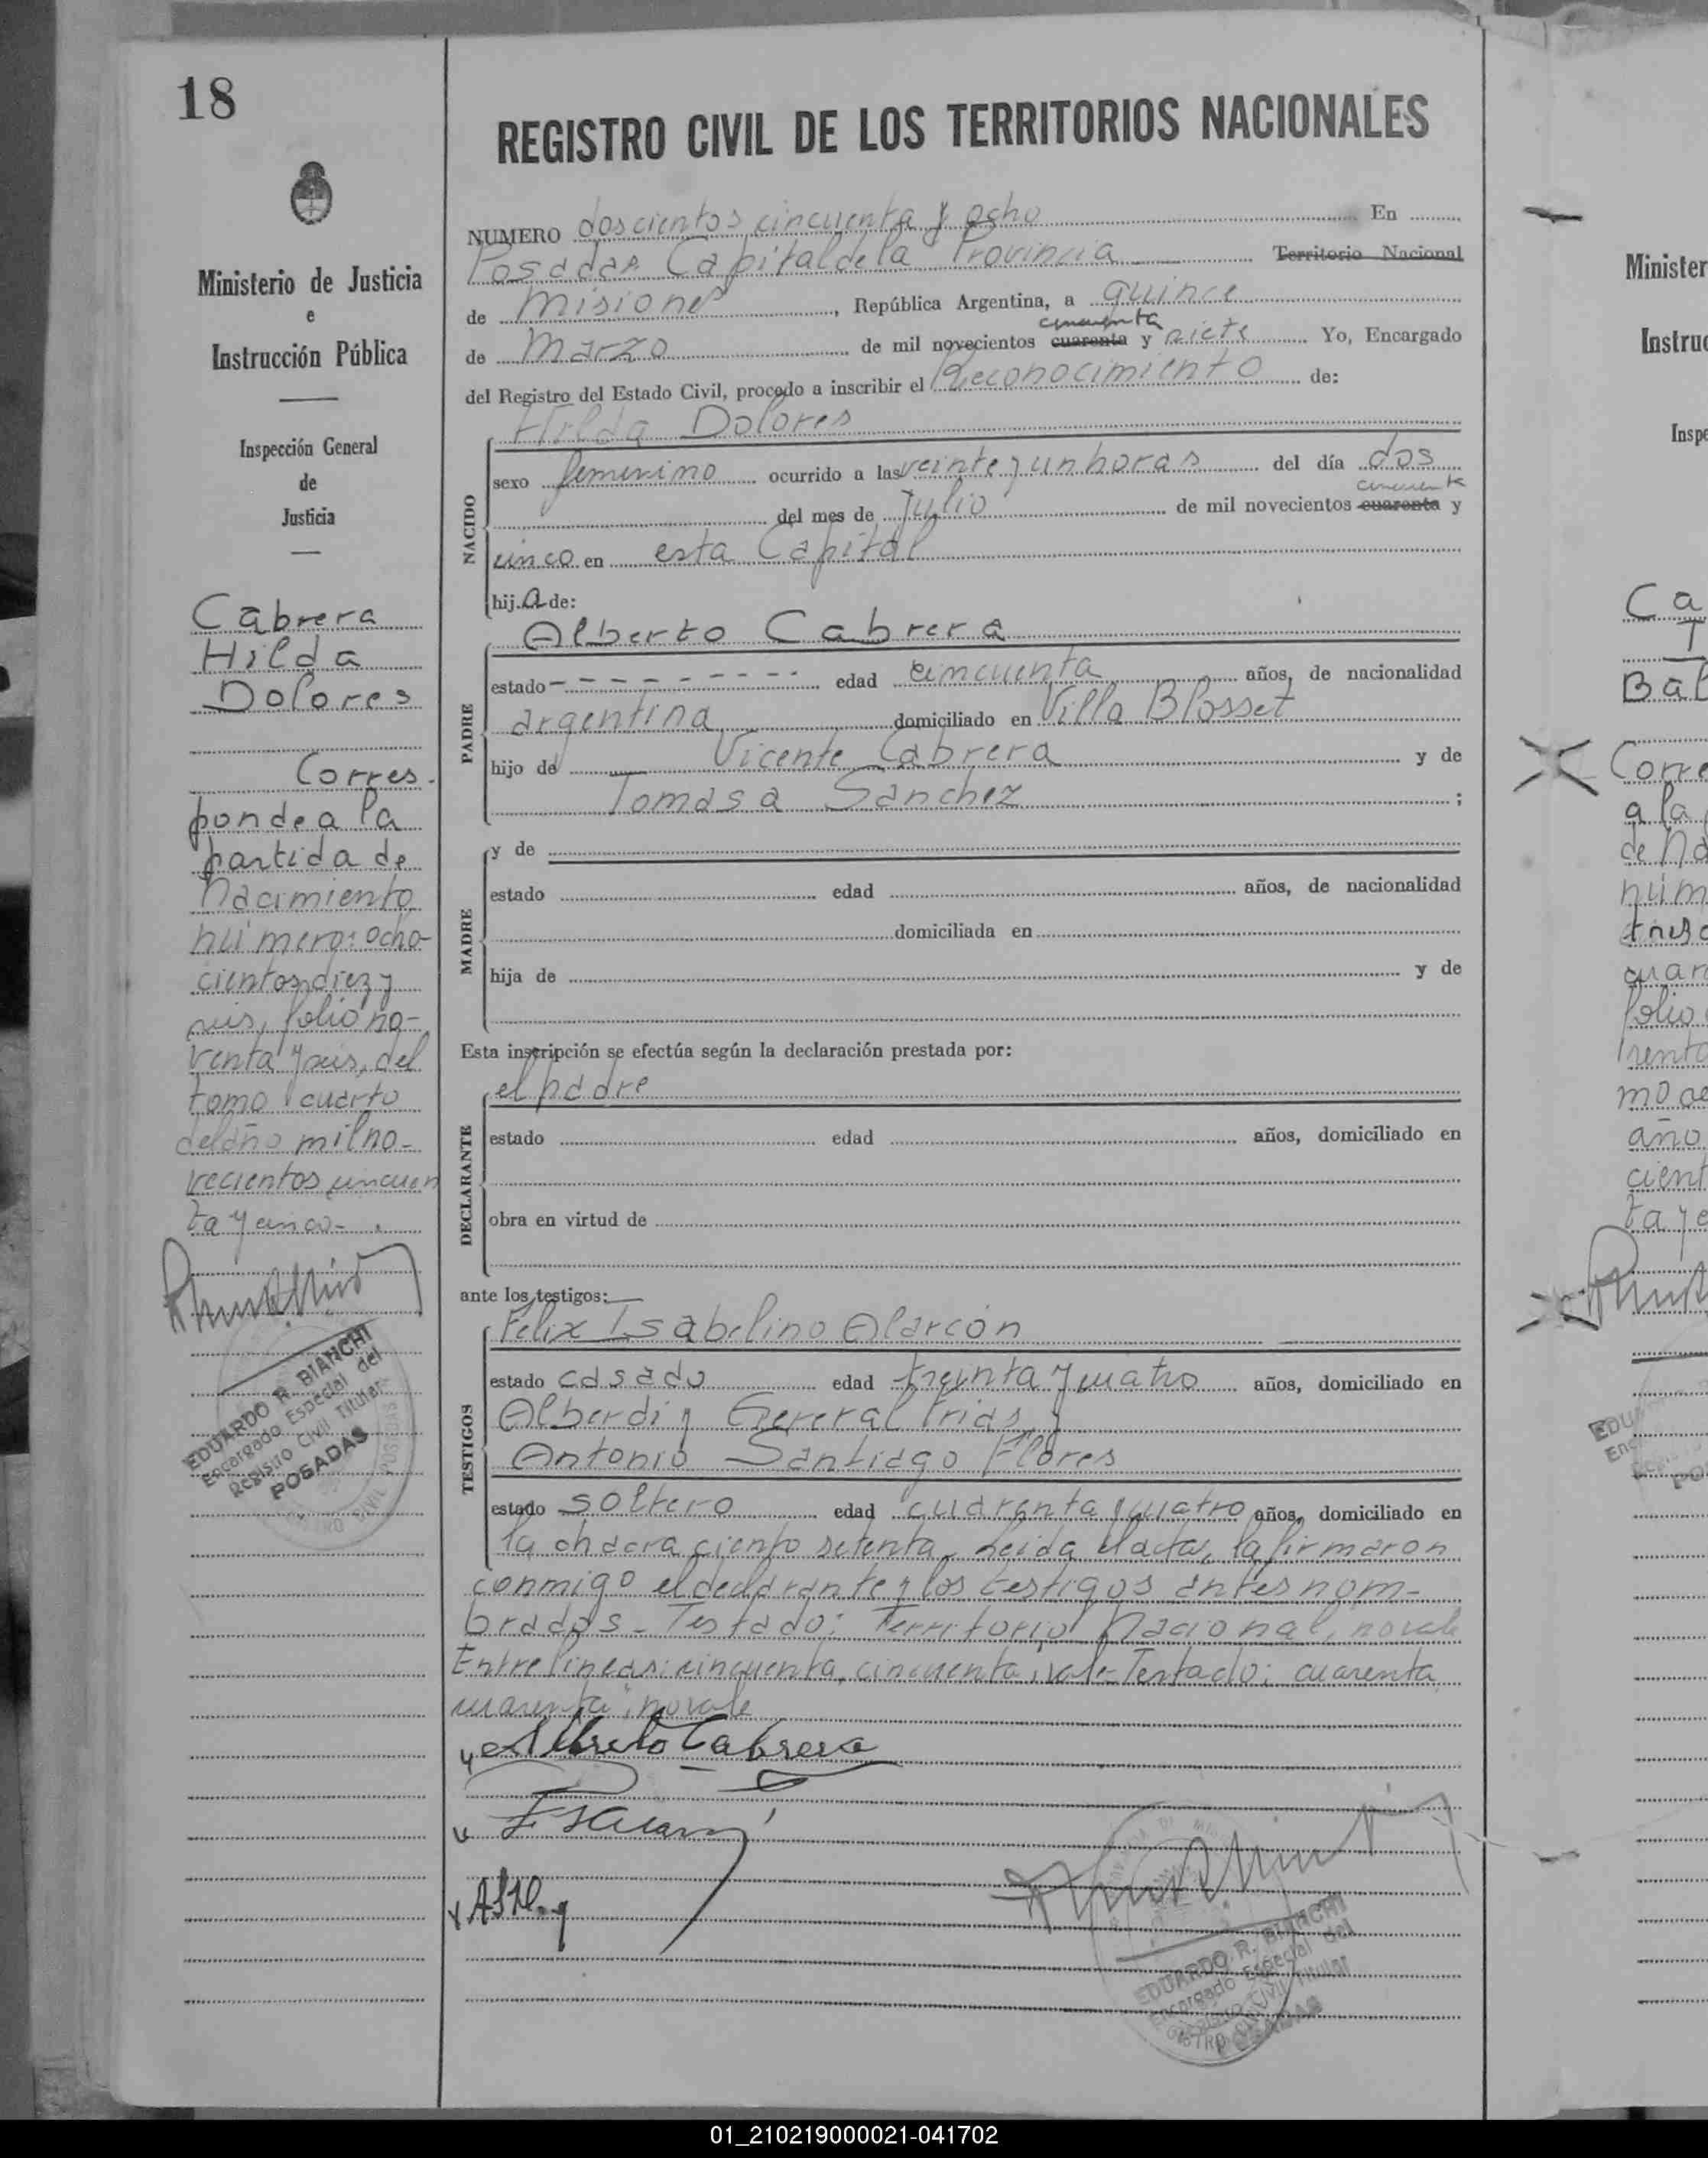 18
Ministerio de Justicia
e
Instrucción Pública
Inspección General
de
Justicia
Cabrera
Hilda
Dolores
Corres-
ponde a la
partida de
Nacimiento
número: ocho-
cientos diez y
seis, folio no-
venta y seis, del
tomo cuarto
del año mil no-
vecientos cincuen
ta y cinco-.
EDUARDO R. BIANCHI
Encargado Especial del
Registro Civil Titular
POSADAS
REGISTRO CIVIL DE LOS TERRITORIOS NACIONALES
NUMERO doscientos cincuenta y ocho En
Posadas Capital de la Provincia Territorio Nacional
de Misiones, República Argentina, a quince
cincuenta
de Marzo de mil novecientos cuarenta y siete Yo, Encargado
del Registro del Estado Civil, procedo a inscribir el Reconocimiento de:
NACIDO
Hilda Dolores
sexo femenino ocurrido a las veinte y un horas del día dos
cincuenta
del mes de Julio de mil novecientos cuarenta y
cinco en esta Capital
hija de:
PADRE
Alberto Cabrera
estado - - - - - - - - - edad cincuenta años, de nacionalidad
argentina domiciliado en Villa Blosset
hijo de Vicente Cabrera y de
Tomasa Sanchez ;
MADRE
y de
estado edad años, de nacionalidad
domiciliada en
hija de y de
Esta inscripción se efectúa según la declaración prestada por:
DECLARANTE
el padre
estado edad años, domiciliado en
obra en virtud de
ante los testigos:
TESTIGOS
Felix Isabelino Alarcón
estado casado edad treinta y cuatro años, domiciliado en
Alberdi y General Frias y
Antonio Santiago Flores
estado soltero edad cuarenta y cuatro años, domiciliado en
la chacra ciento setenta. Leida el acta, la firmaron
conmigo el declarante y los testigos antes nom-
brados. Testado: Territorio Nacional, no vale
Entrelíneas: cincuenta, cincuenta, vale- Testado: cuarenta
cuarenta", no vale
Alberto Cabrera
EDUARDO R. BIANCHI
Encargado Especial del
Registro Civil Titular
POSADAS
Minister
Instruc
Inspe
Ca
Corre
a la
de Na
núm
cuar
folio
año
cient
ta y c
01_210219000021-041702